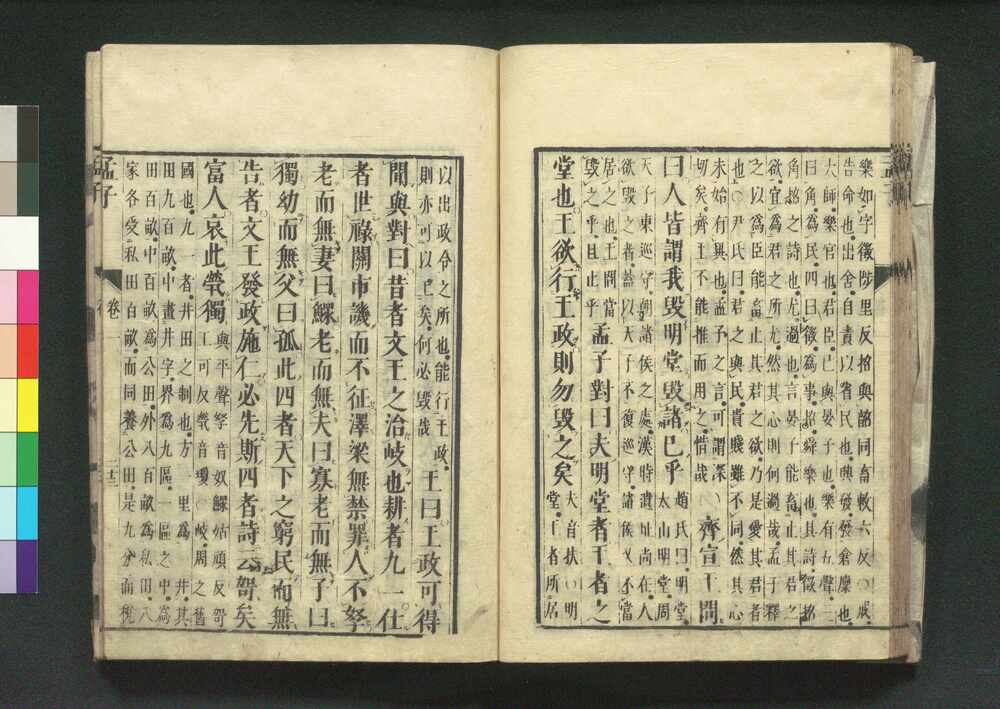 樂如字徵陟里反招與韶同畜敕六反○戒
告命也出舍自責以省民也興發發倉廩也
大師樂官也君臣己與晏子也樂有五聲三
曰角為民四曰徵為事招舜樂也其詩徵招
角招之詩也尤過也言晏子能畜止其君之
欲宜為君之所尤然其心則何過哉孟子釋
之以為臣能畜止其君之欲乃是愛其君者
也○尹氏曰君之與民貴賤雖不同然其心
未始有異也孟子之言可謂深
切矣齊王不能推而用之惜哉
齊宣王問
曰人皆謂我毀明堂毀諸已乎
趙氏曰明堂
太山明堂周
天子東巡守朝諸侯之處漢時遺址尚在人
欲毀之者蓋以天子不復巡守諸侯又不當
居之也王問當
毀之乎且止乎
孟子對曰夫明堂者王者之
堂也王欲行王政則勿毀之矣
夫音扶○明
堂王者所居
以出政令之所也能行王政
則亦可以王矣何必毀哉
王曰王政可得
聞與對曰昔者文王之治岐也耕者九一仕
者世祿關市譏而不征澤梁無禁罪人不孥
老而無妻曰鰥老而無夫曰寡老而無子曰
獨幼而無父曰孤此四者天下之窮民而無
告者文王發政施仁必先斯四者詩云哿矣
富人哀此煢獨
與平聲孥音奴鰥姑頑反哿
工可反煢音瓊○岐周之舊
國也九一者井田之制也方一里為一井其
田九百畝中畫井字界為九區一區之中為
田百畝中百畝為公田外八百畝為私田八
家各受私田百畝而同養公田是九分而稅
孟子
卷一